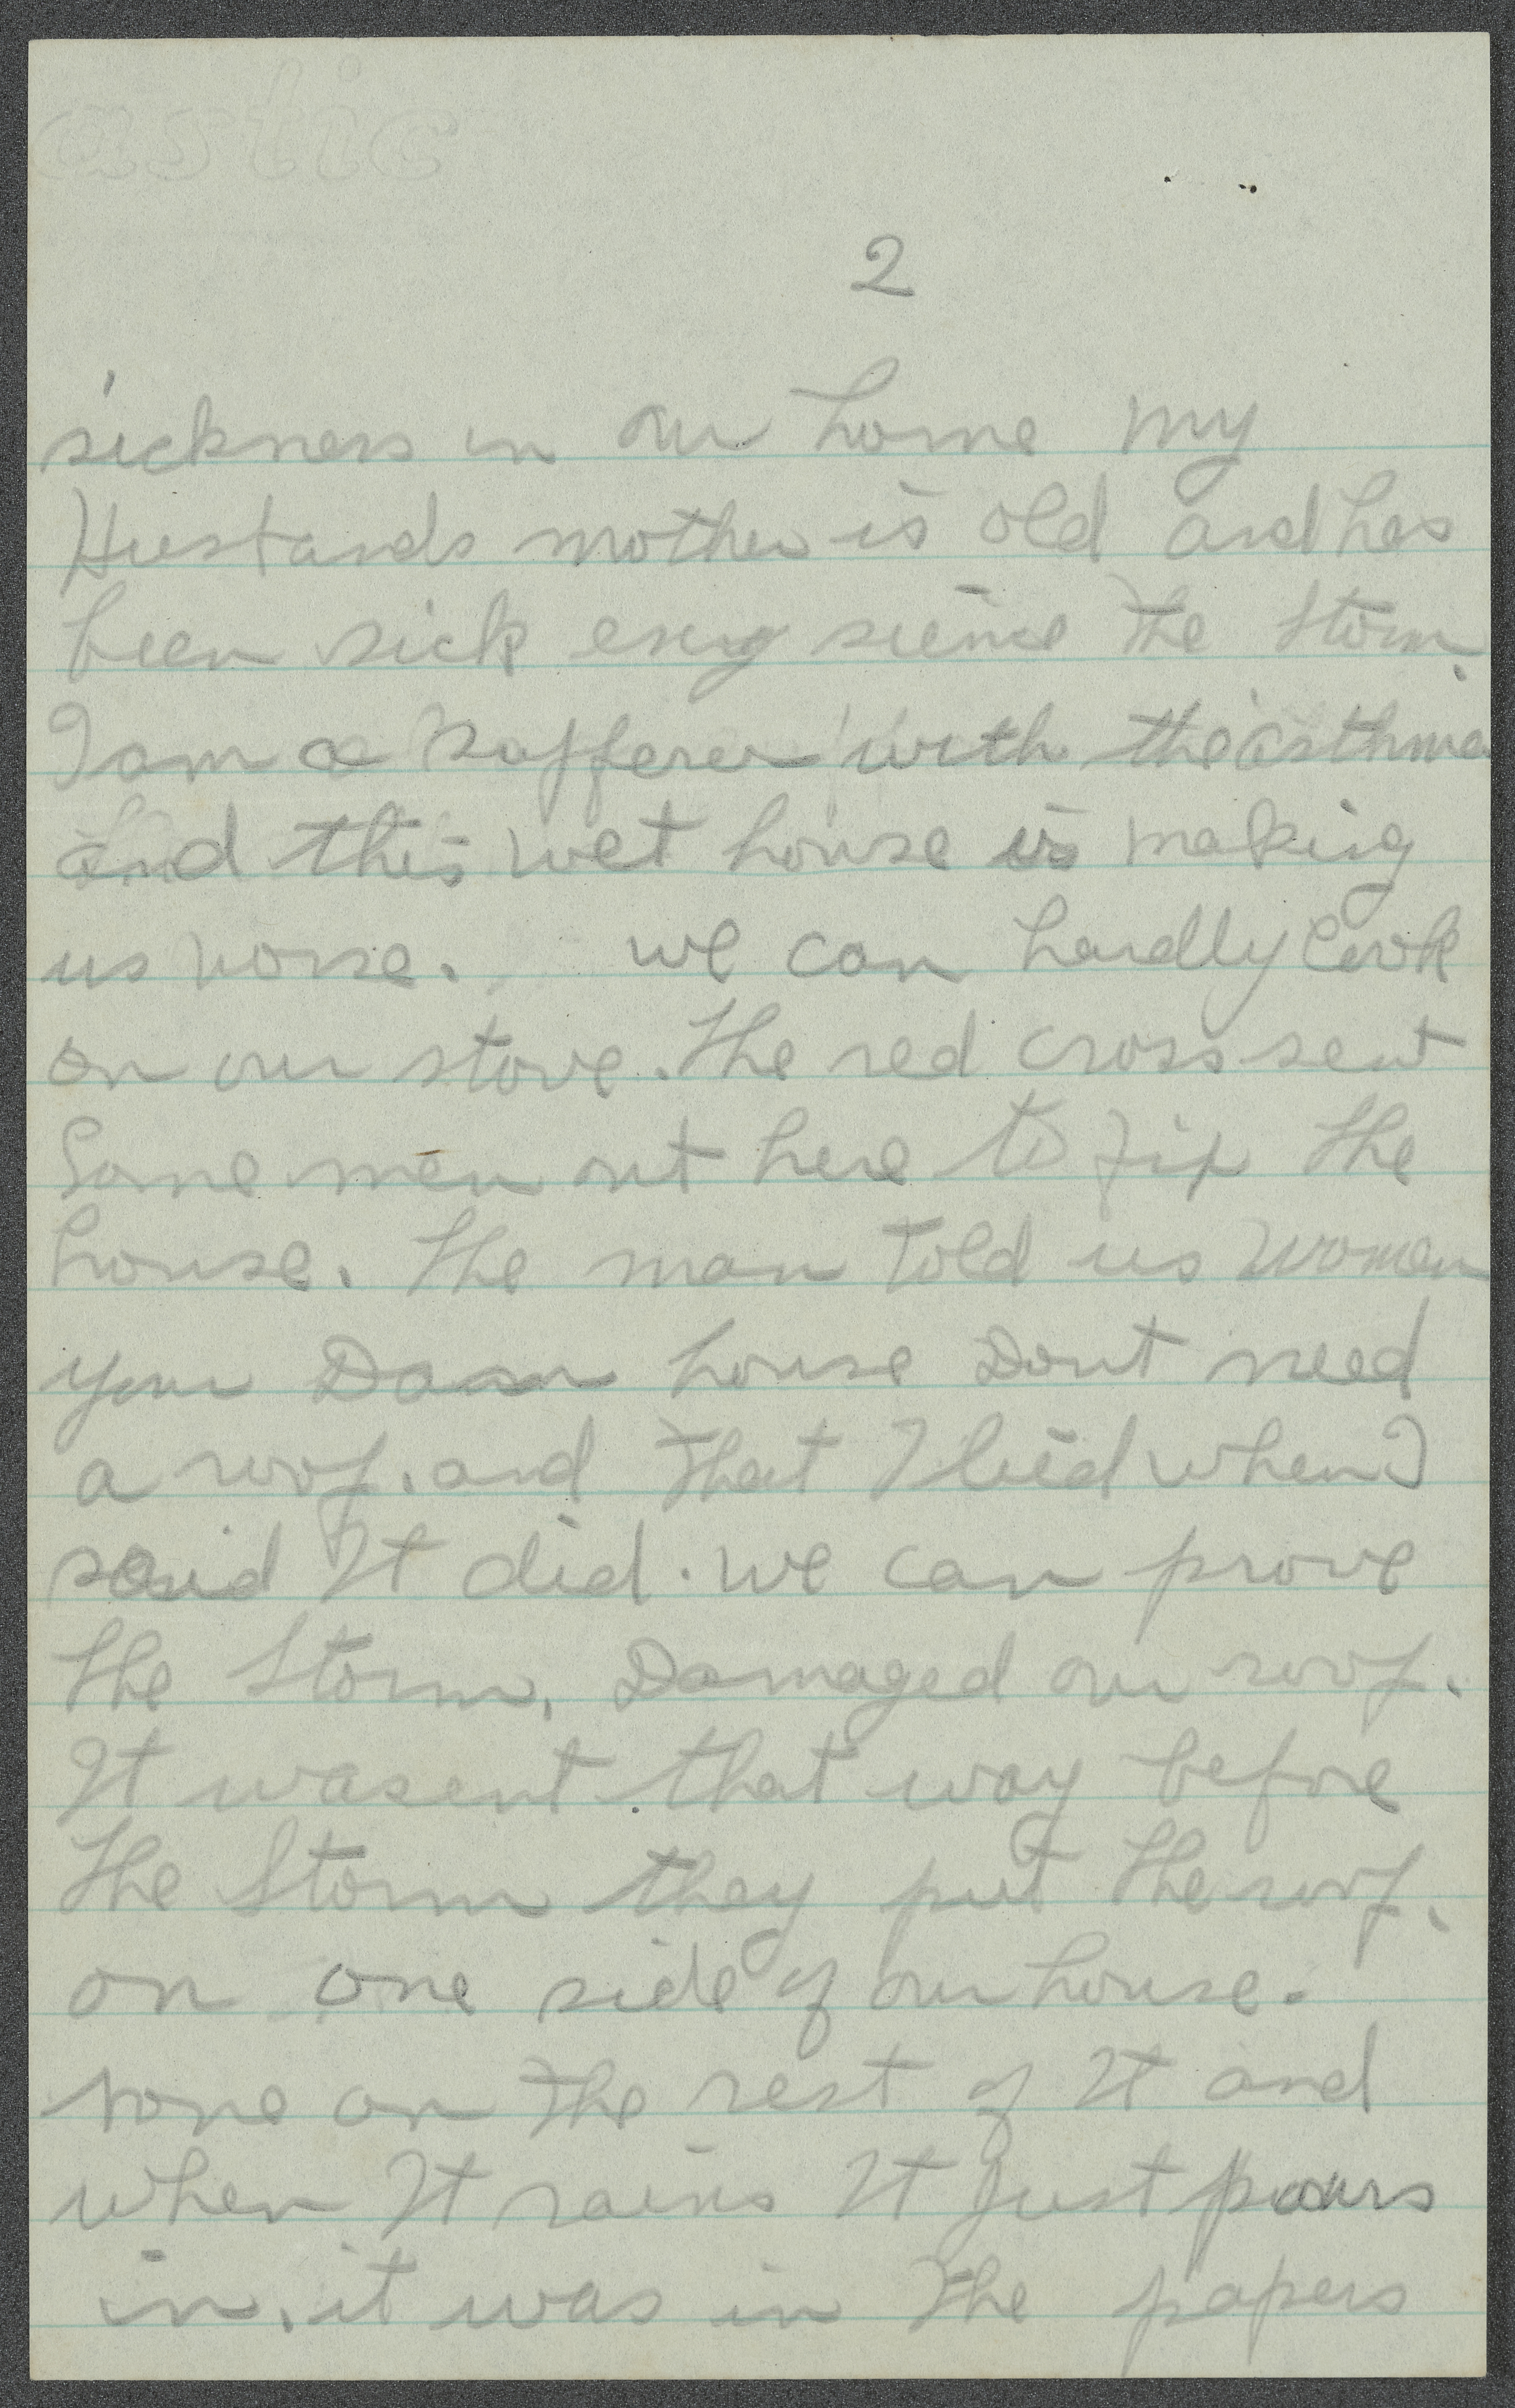 astic
2
sickness in our home my
Husbands mother is old and has
been sick every since the storm.
I am a sufferer with the asthma
and this wet house is making
us worse. we can hardly cook
on our stove. The red cross sent
Some men out here to fix the
house. The man told us women
your Damn house Dont need
a roof. and that I lied when I
said It did. we can prove
the storm. Damaged our roof.
It wasent that way before
The Storm they put the roof.
on one side of our house.
none on the rest of It and
when It rains It Just pours
in. it was in the papers